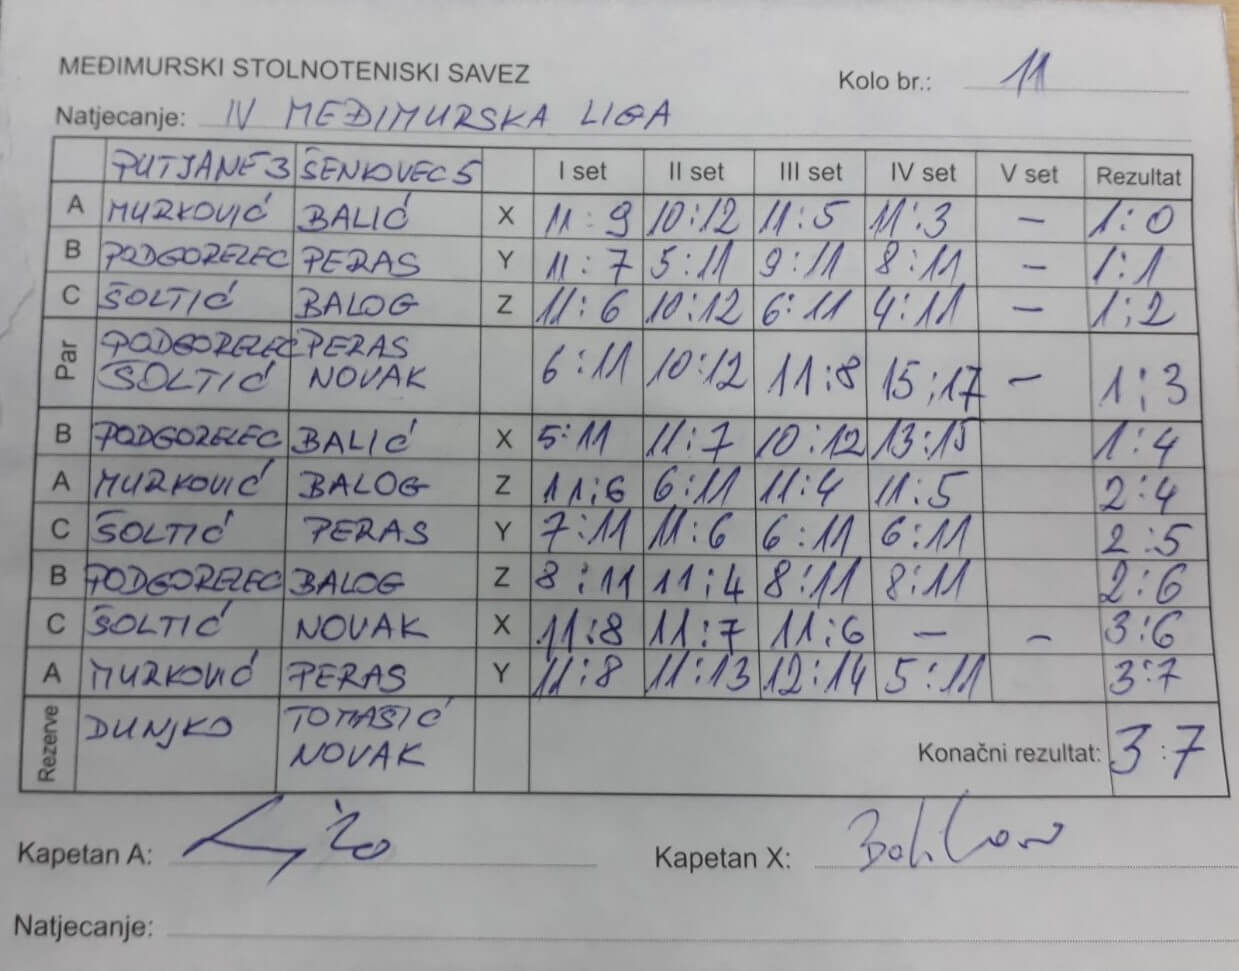 MEĐIMURSKI STOLNOTENISKI SAVEZ
Kolo br.: 11
Natjecanje: IV MEĐIMURSKA LIGA
PUTJANE 3 ŠENKOVEC 5 I set II set III set IV set V set Rezultat
A MURKOVIĆ BALIĆ X 11:9 10:12 11:5 11:3 – 1:0
B PODGORELEC PERAS Y 11:7 5:11 9:11 8:11 – 1:1
C ŠOLTIĆ BALOG Z 11:6 10:12 6:11 4:11 – 1:2
Par PODGORELEC PERAS
ŠOLTIĆ NOVAK 6:11 10:12 11:8 15:17 – 1:3
B PODGORELEC BALIĆ X 5:11 11:7 10:12 13:15 1:4
A MURKOVIĆ BALOG Z 11:6 6:11 11:4 11:5 2:4
C ŠOLTIĆ PERAS Y 7:11 11:6 6:11 6:11 2:5
B PODGORELEC BALOG Z 8:11 11:4 8:11 8:11 2:6
C ŠOLTIĆ NOVAK X 11:8 11:7 11:6 – – 3:6
A MURKOVIĆ PERAS Y 11:8 11:13 12:14 5:11 3:7
Rezerve DUNJKO TOMAŠIĆ
NOVAK
Konačni rezultat: 3:7
Kapetan A:
Kapetan X:
Natjecanje: